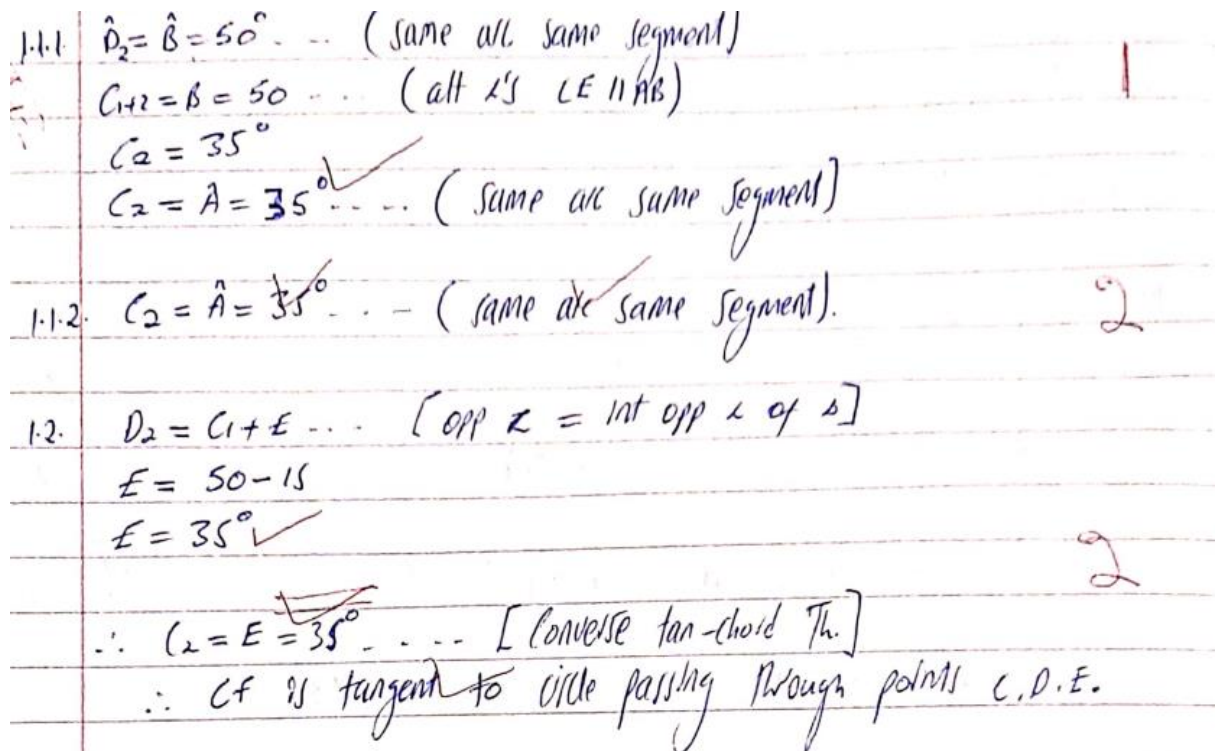 1.1.1. D̂₂ = B̂ = 50° ... (same arc same segment) 1
C₁₊₂ = B = 50 ... (alt ∠'s CE ∥ AB)
C₂ = 35°
C₂ = Â = 35° .... (same arc same segment)
1.1.2. C₂ = Â = 35° ... (same arc same segment). 2
1.2. D₂ = C₁ + E .... [opp ∠ = int opp ∠ of Δ]
E = 50 - 15
E = 35° 2
∴ C₂ = E = 35° ..... [Converse tan-chord Th.]
∴ CF is tangent to circle passing through points C.D.E.